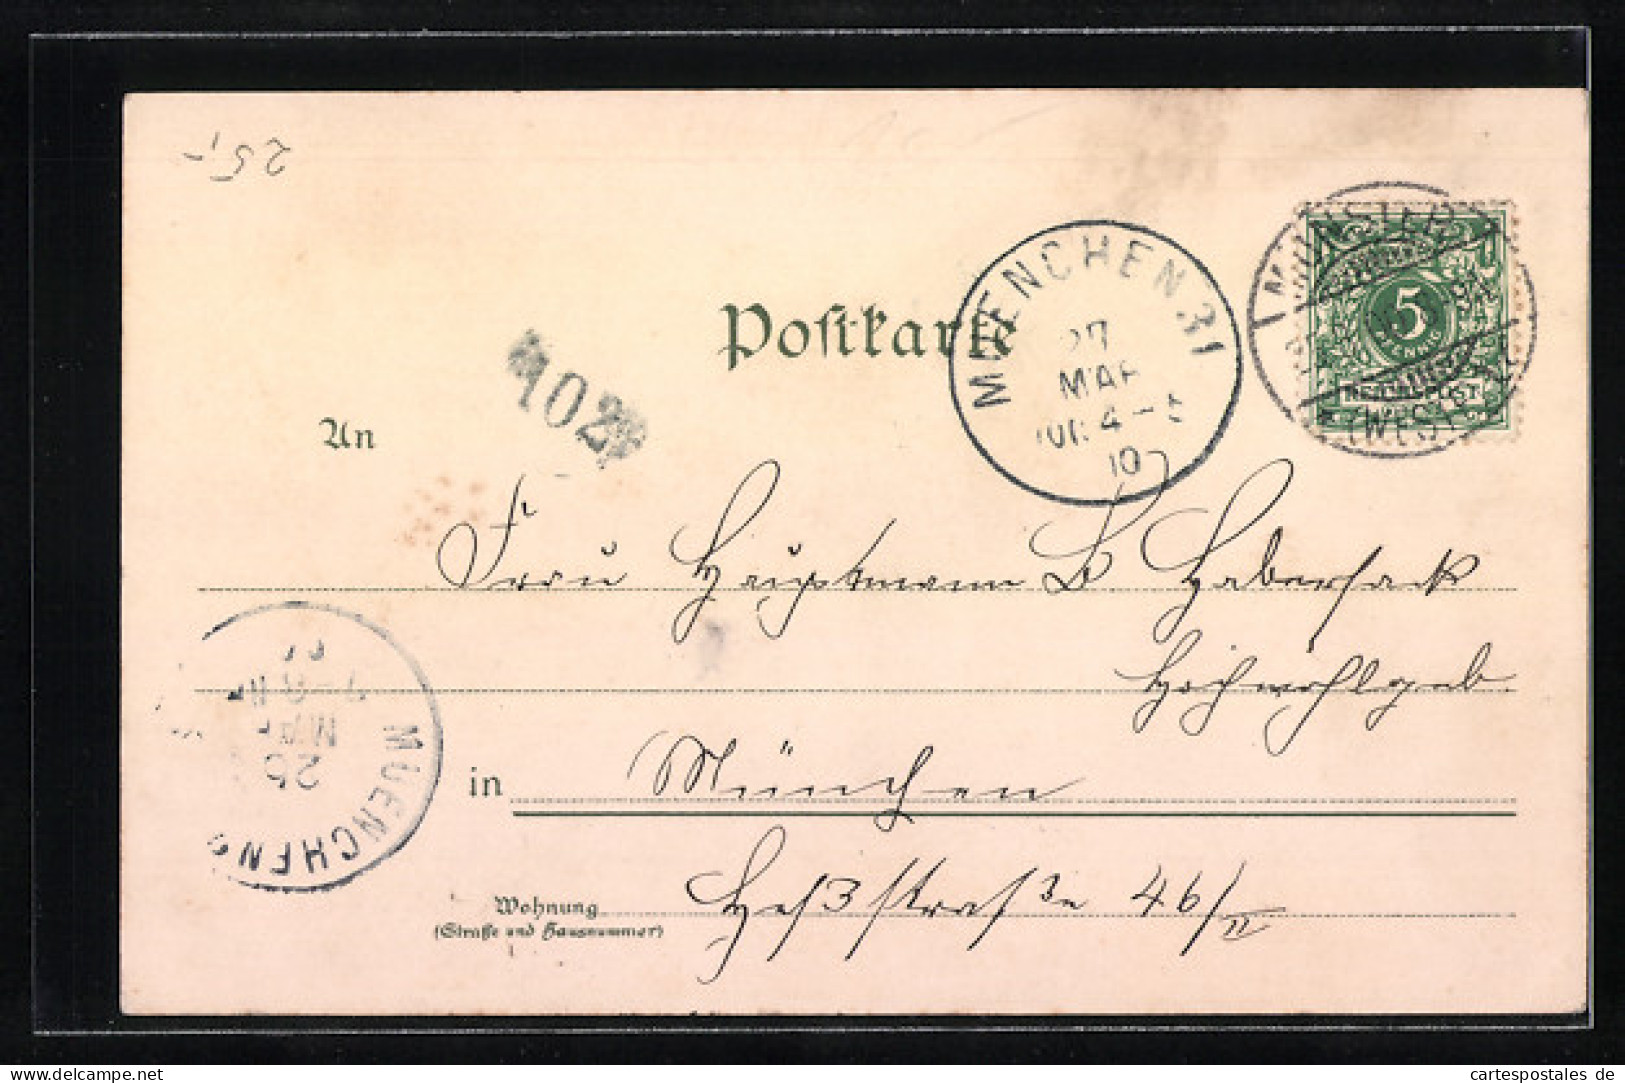 25,-
Postkarte
MUENCHEN 31
27
MAR
4-5
10
MÜNSTER
(WESTF.)
5
REICHSPOST
102
An
Frau Hauptmann B Habersack
Hochwohlgeb.
in München
Wohnung
(Straße und Hausnummer)
Heßstraße 46/II
MUENCHEN
MAR
cartespostales de